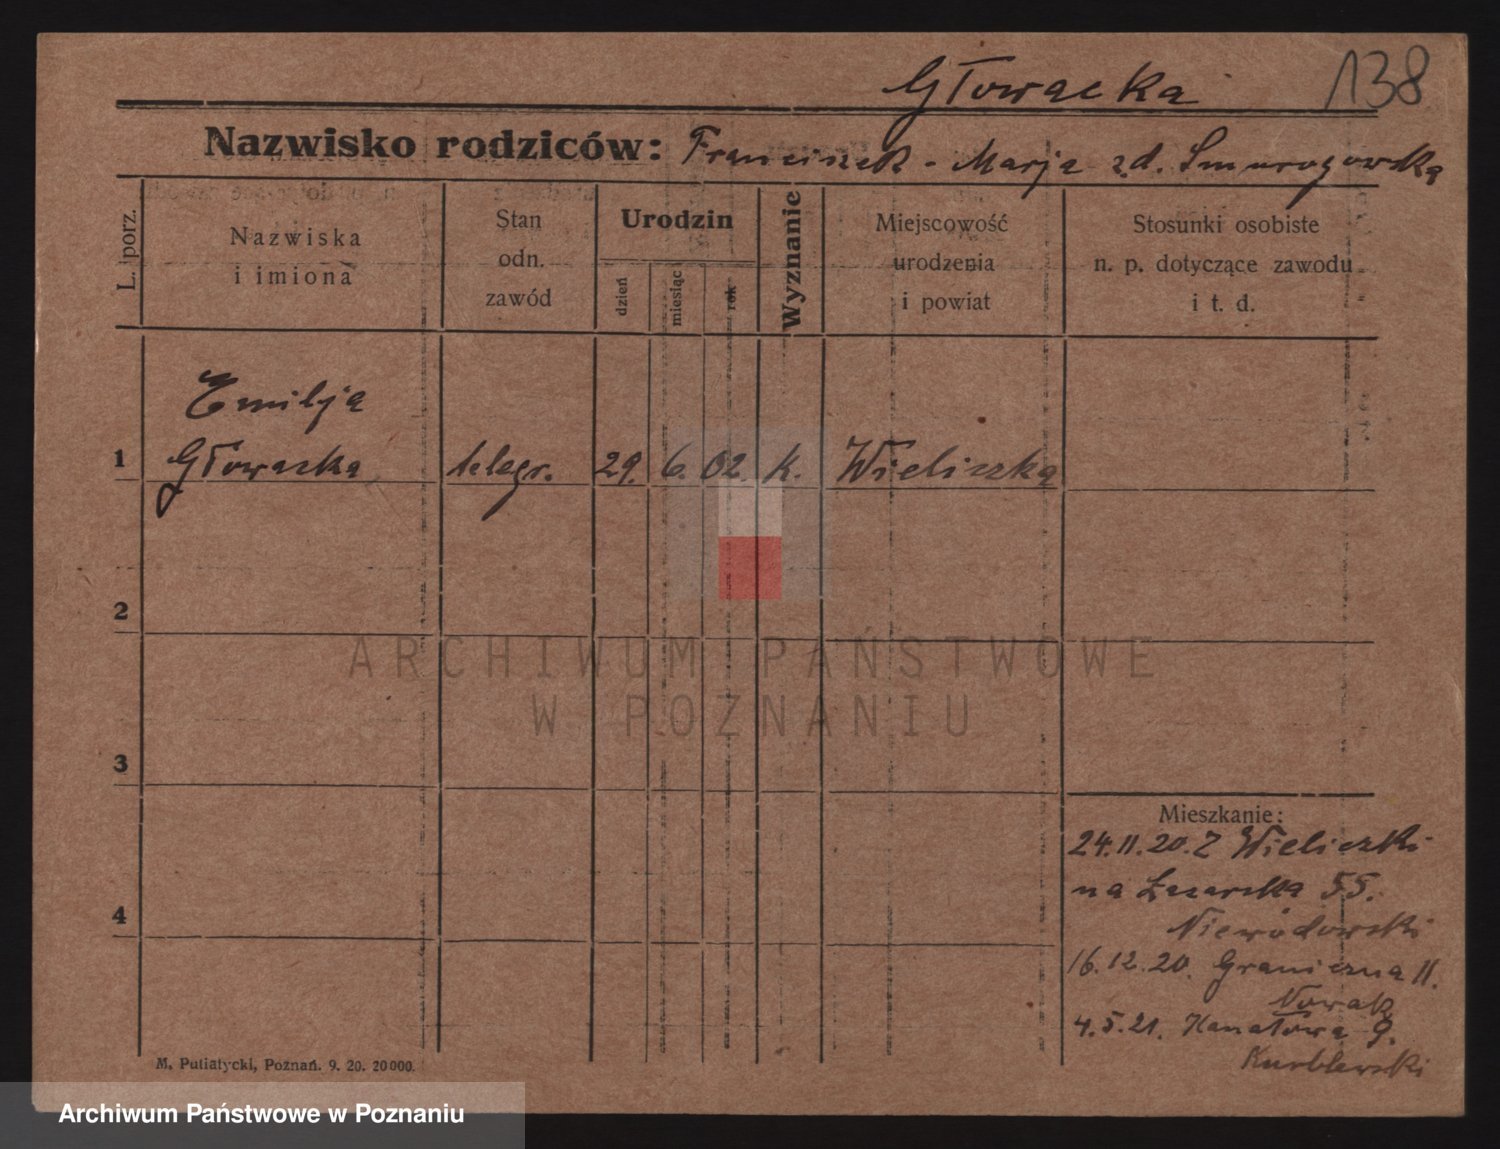 Głowacka 138
Nazwisko rodziców: Franciszek - Marja zd. Smurogowska
L. porz.
Nazwiska
i imiona
Stan
odn.
zawód
Urodzin
dzień
miesiąc
rok
Wyznanie
Miejscowość
urodzenia
i powiat
Stosunki osobiste
n. p. dotyczące zawodu
i t. d.
Emilja
1 Głowacka telegr. 29. 6. 02. K. Wieliczka
2
3
4
Mieszkanie:
24.11.20. Z Wieliczki
na Łazarska 55.
Niewodowski
16.12.20. Graniczna 11.
Nowak
4.5.21. Kanałowa 9.
M. Putiatycki, Poznań. 9. 20. 20000.
ARCHIWUM PAŃSTWOWE
W POZNANIU
Archiwum Państwowe w Poznaniu